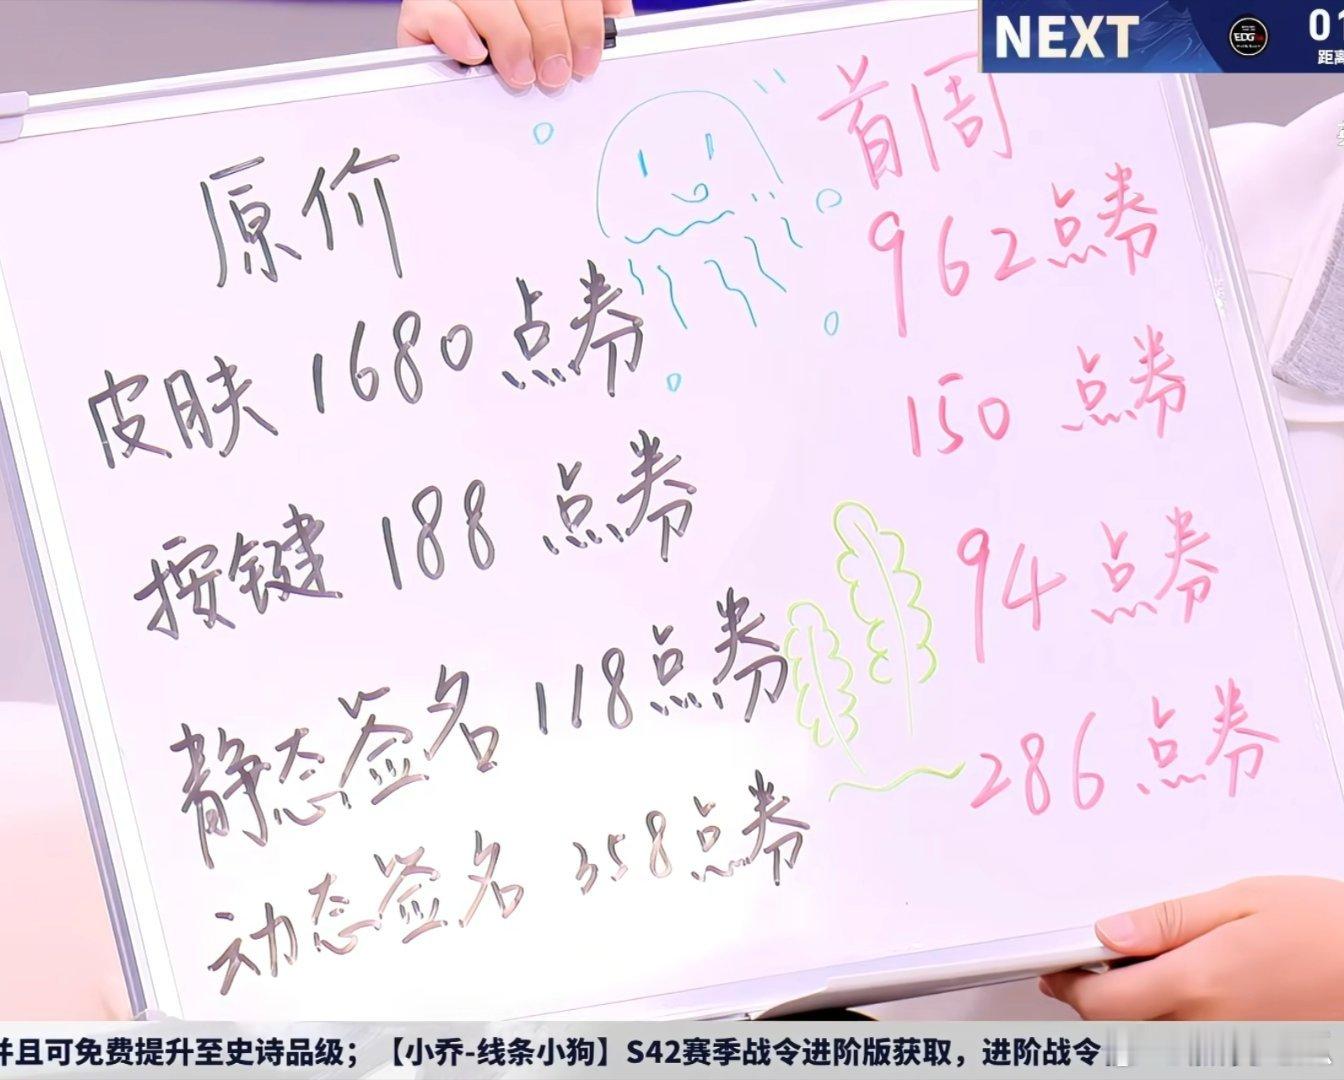 NEXT
EDG
01
距离
原价 首周
皮肤 1680点券 962点券
按键 188 点券 150 点券
静态签名 118点券 94点券
动态签名 358点券 286点券
并且可免费提升至史诗品级；【小乔-线条小狗】S42赛季战令进阶版获取，进阶战令